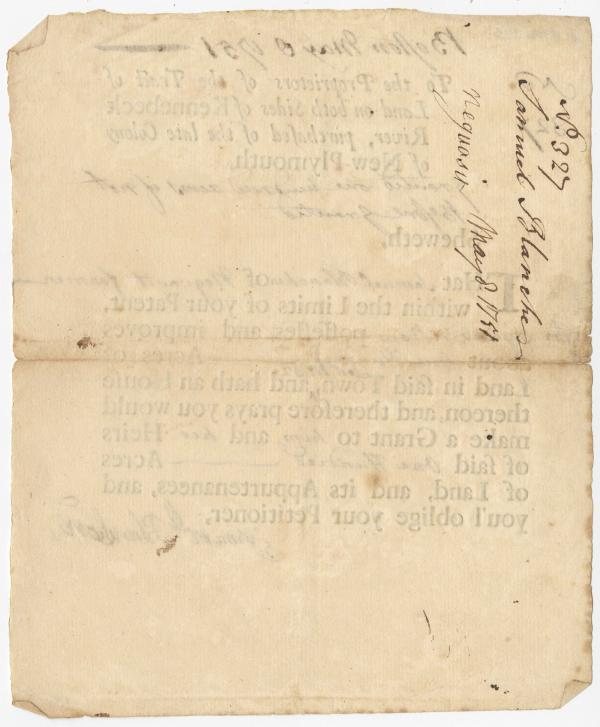 No 327
Samuel Blancher
Neguasit May 8. 1751
Boston May 8 1751
To the Proprietors of the Tract of
Land on both Sides of Kennebeck
River, purchased of the late Colony
of New Plymouth.
Granted one hundred acres if not
before granted
sheweth,
THat Samuel of farmer
within the Limits of your Patent,
possesses and improves
about Acres of
Land in said Town, and hath an House
thereon, and therefore prays you would
make a Grant to him and his Heirs
of said One Hundred Acres
of Land, and its Appurtenances, and
you'l oblige your Petitioner,
Samuel